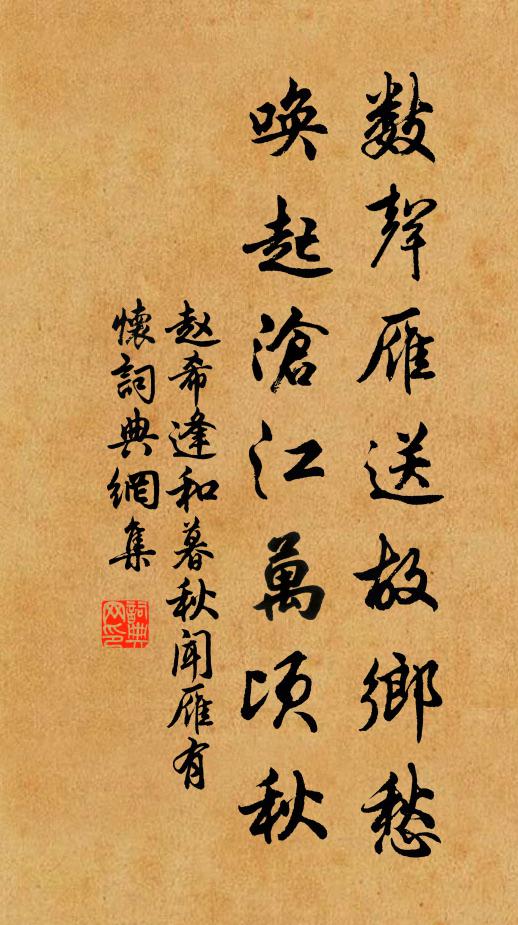 數聲雁送故鄉愁
喚起滄江萬頃秋
赵希逢和暮秋闻雁有
懷詞典網集
詞典网印